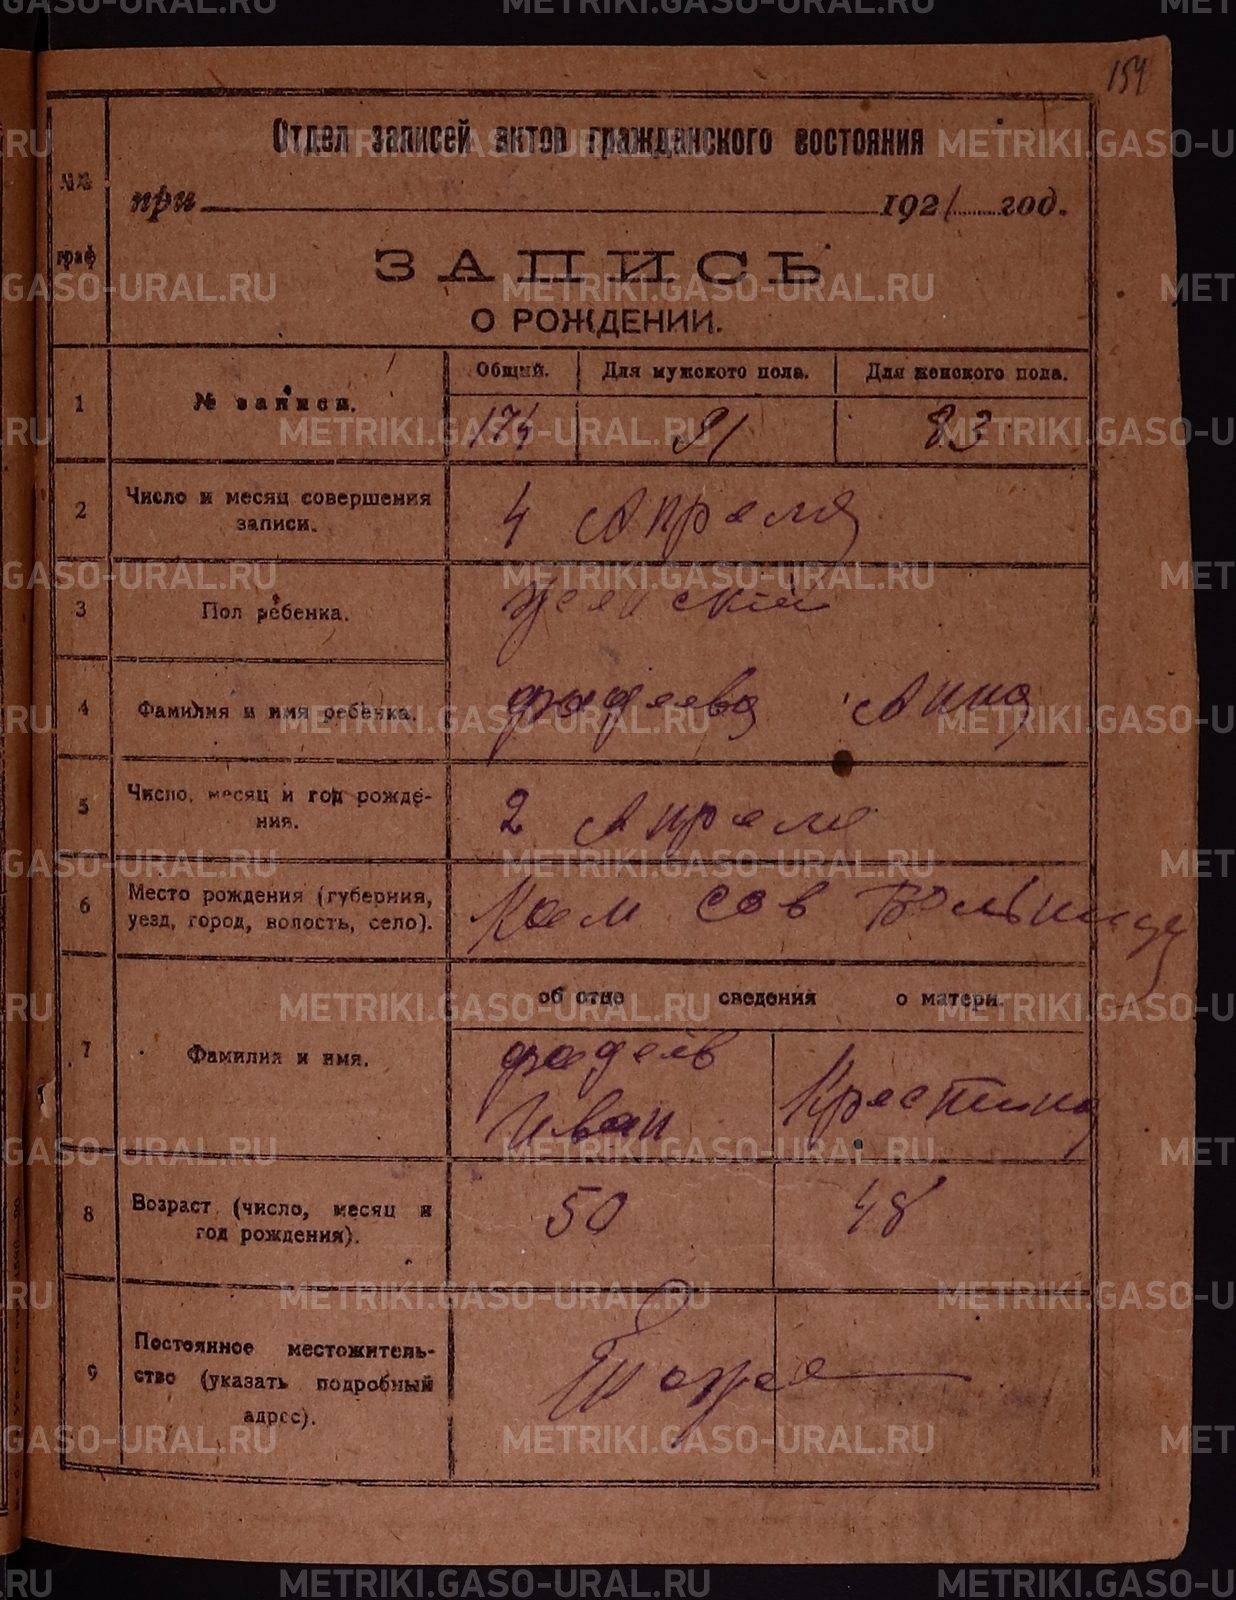 154
Отдел записей актов гражданского состояния
№№ граф
при 1921 год.
ЗАПИСЬ
О РОЖДЕНИИ.
1 № записи. Общий. Для мужского пола. Для женского пола.
174 91 83
2 Число и месяц совершения записи. 4 Апреля
3 Пол ребенка. женский
4 Фамилия и имя ребенка. Фадеева Анна
5 Число, месяц и год рождения. 2 Апреля
6 Место рождения (губерния, уезд, город, волость, село). Кам сов Больница
об отце сведения о матери.
7 Фамилия и имя. Фадеев Иван Крестина
8 Возраст (число, месяц и год рождения). 50 48
9 Постоянное местожительство (указать подробный адрес).
METRIKI.GASO-URAL.RU